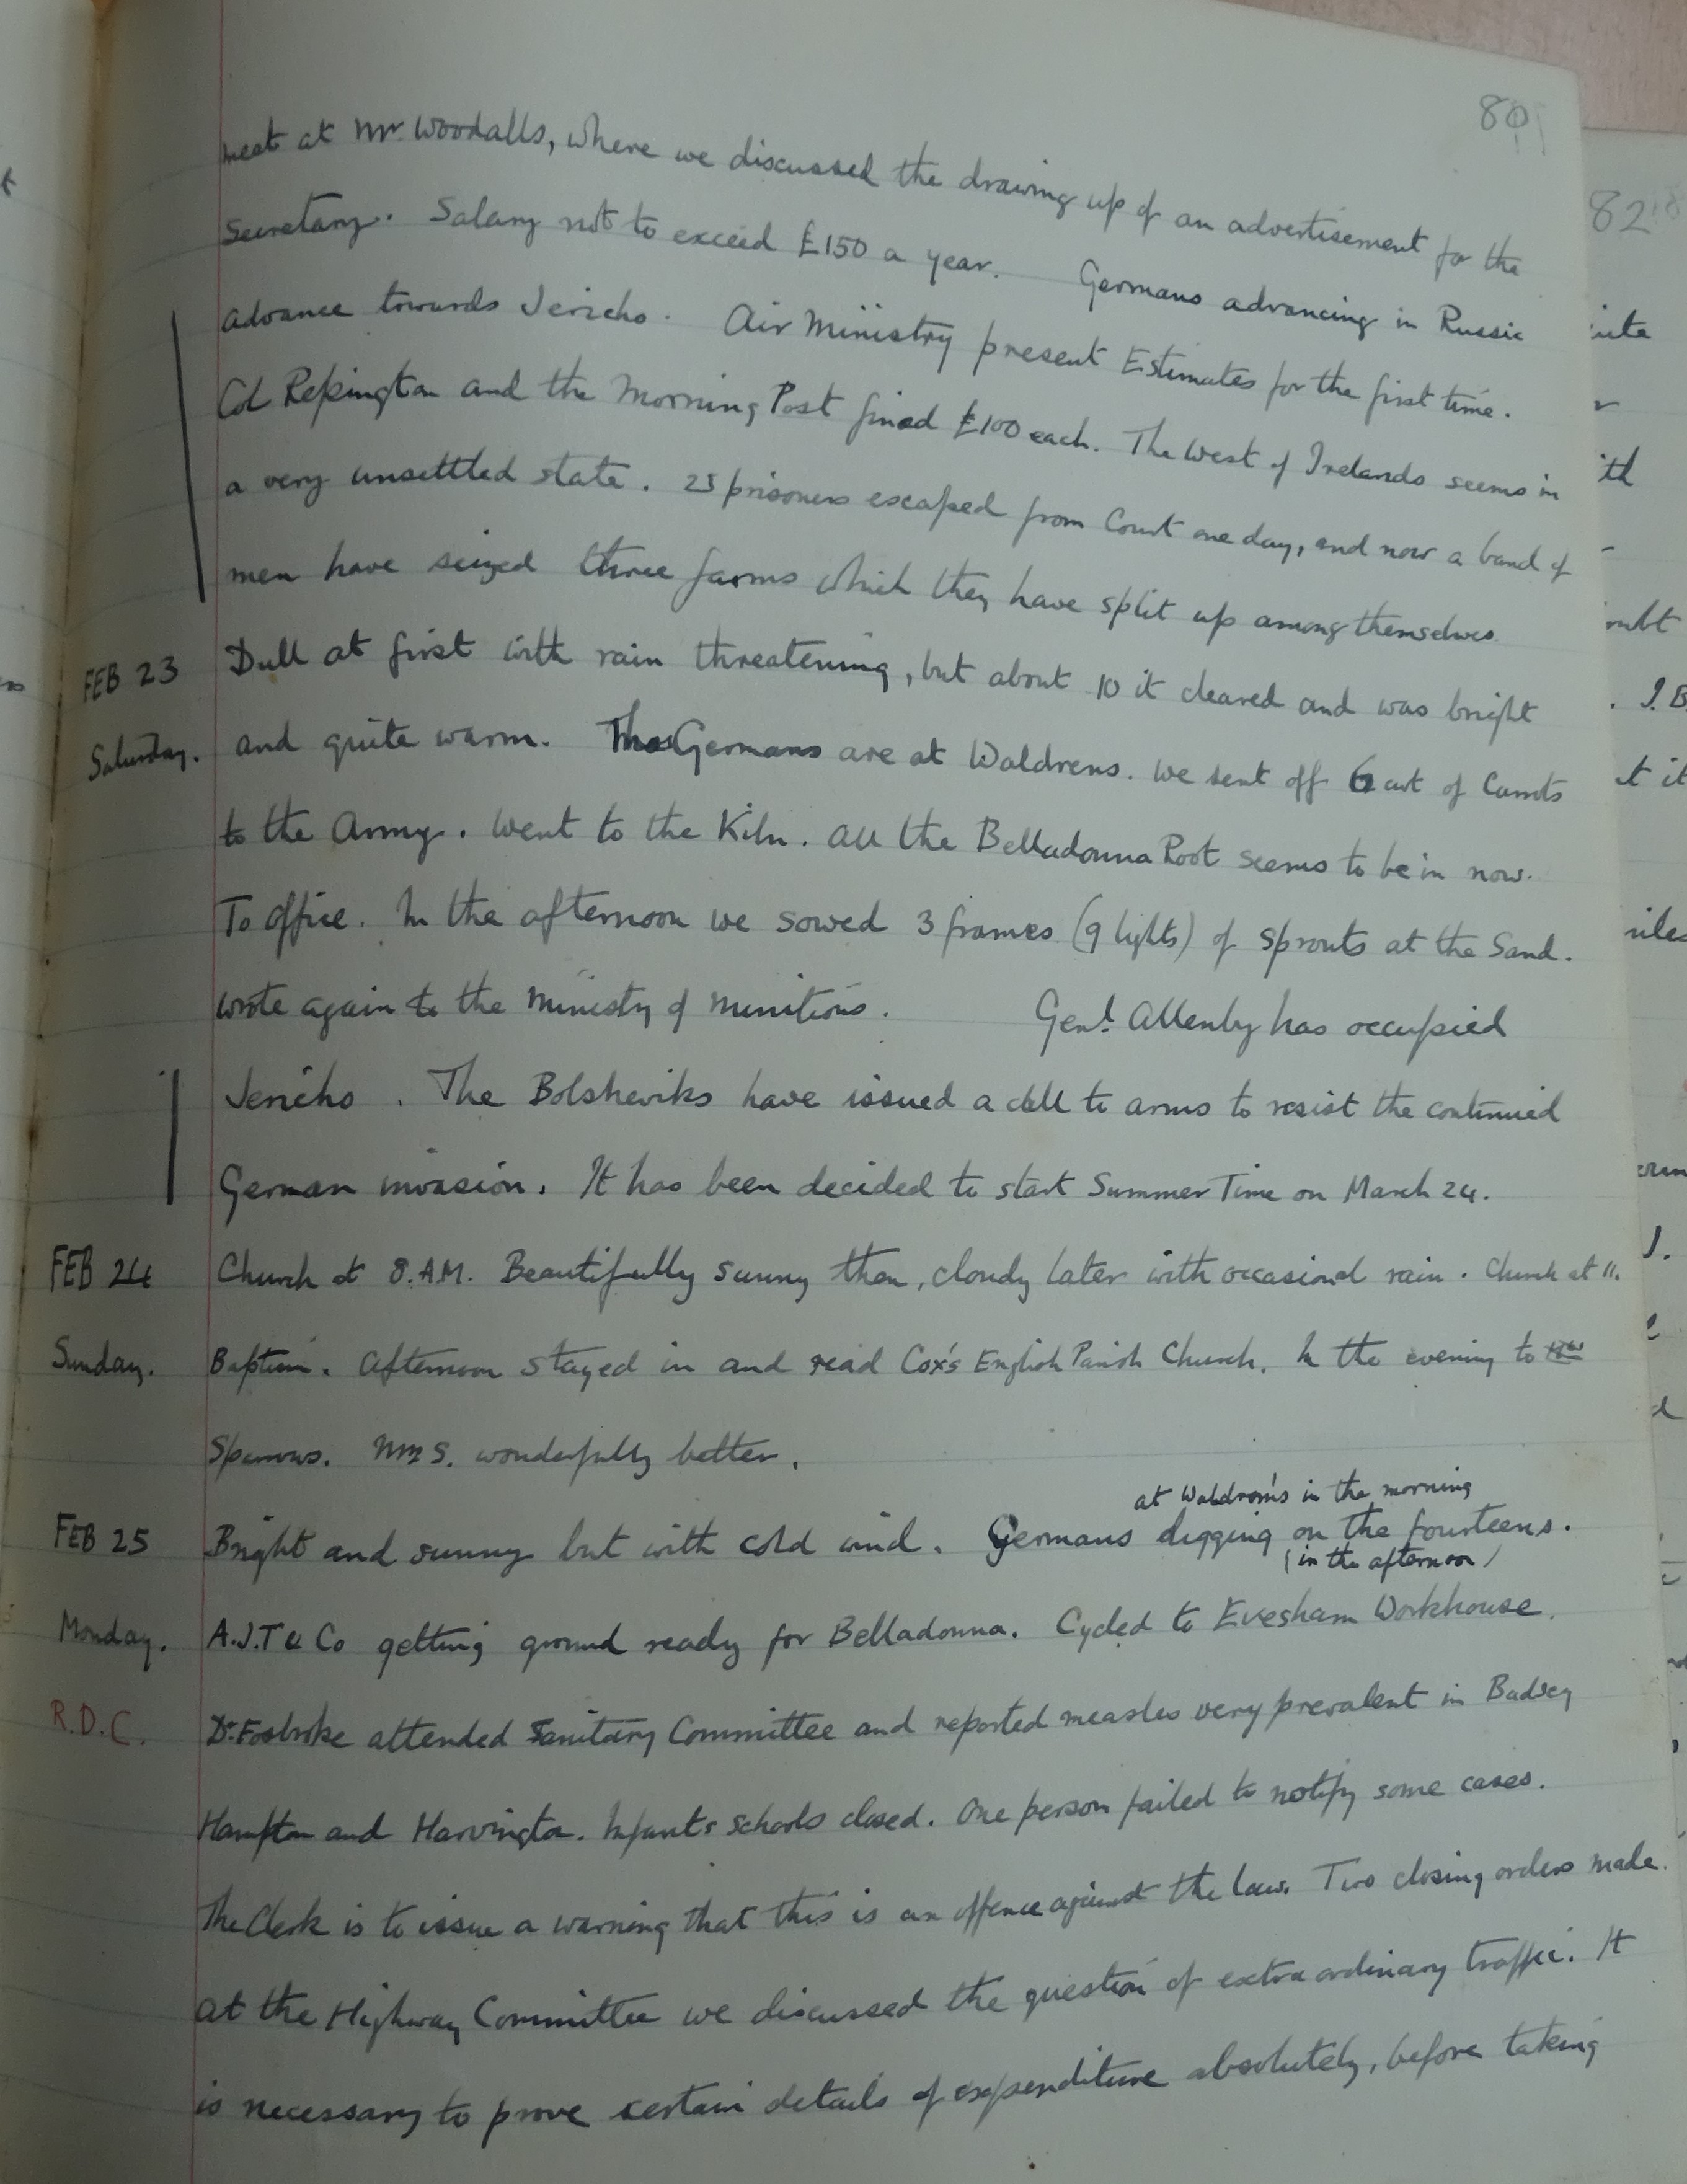 80
meet at Mr. Woodalls, where we discussed the drawing up of an advertisement for the
Secretary. Salary not to exceed £150 a year. Germans advancing in Russia
advance towards Jericho. Air Ministry present Estimates for the first time.
Col Repington and the Morning Post fined £100 each. The West of Irelands seems in
a very unsettled state. 25 prisoners escaped from Court one day, and now a band of
men have seized three farms which they have split up among themselves.
FEB 23 Dull at first with rain threatening, but about 10 it cleared and was bright
Saturday. and quite warm. The Germans are at Waldrens. We sent off 6 cwt of Carrots
to the Army. Went to the Kiln. All the Belladonna Root seems to be in now.
To office. In the afternoon we sowed 3 frames (9 lights) of sprouts at the Sand.
Wrote again to the Ministry of Munitions. Genl. Allenby has occupied
Jericho. The Bolsheviks have issued a call to arms to resist the continued
German invasion. It has been decided to start Summer Time on March 24.
FEB 24 Church at 8.A.M. Beautifully sunny then, cloudy later with occasional rain. Church at 11.
Sunday. Baptism. Afternoon stayed in and read Cox's English Parish Church. In the evening to
Sparrows. Mrs S. wonderfully better.
at Waldron's in the morning
FEB 25 Bright and sunny but with cold wind. Germans digging on the fourteens.
(in the afternoon)
Monday. A.J.T & Co getting ground ready for Belladonna. Cycled to Evesham Workhouse.
R.D.C. Dr. Fosbroke attended Sanitary Committee and reported measles very prevalent in Badsey
Hampton and Harvington. Infants schools closed. One person failed to notify some cases.
The Clerk is to issue a warning that this is an offence against the law. Two closing orders made.
At the Highway Committee we discussed the question of extraordinary traffic. It
is necessary to prove certain details of expenditure absolutely, before taking
82